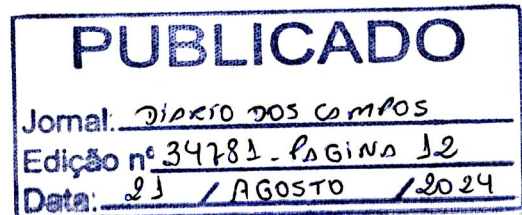 PUBLICADO
Jornal: DIARIO DOS CAMPOS
Edição nº 34781 - PAGINA 12
Data: 21 / AGOSTO / 2024